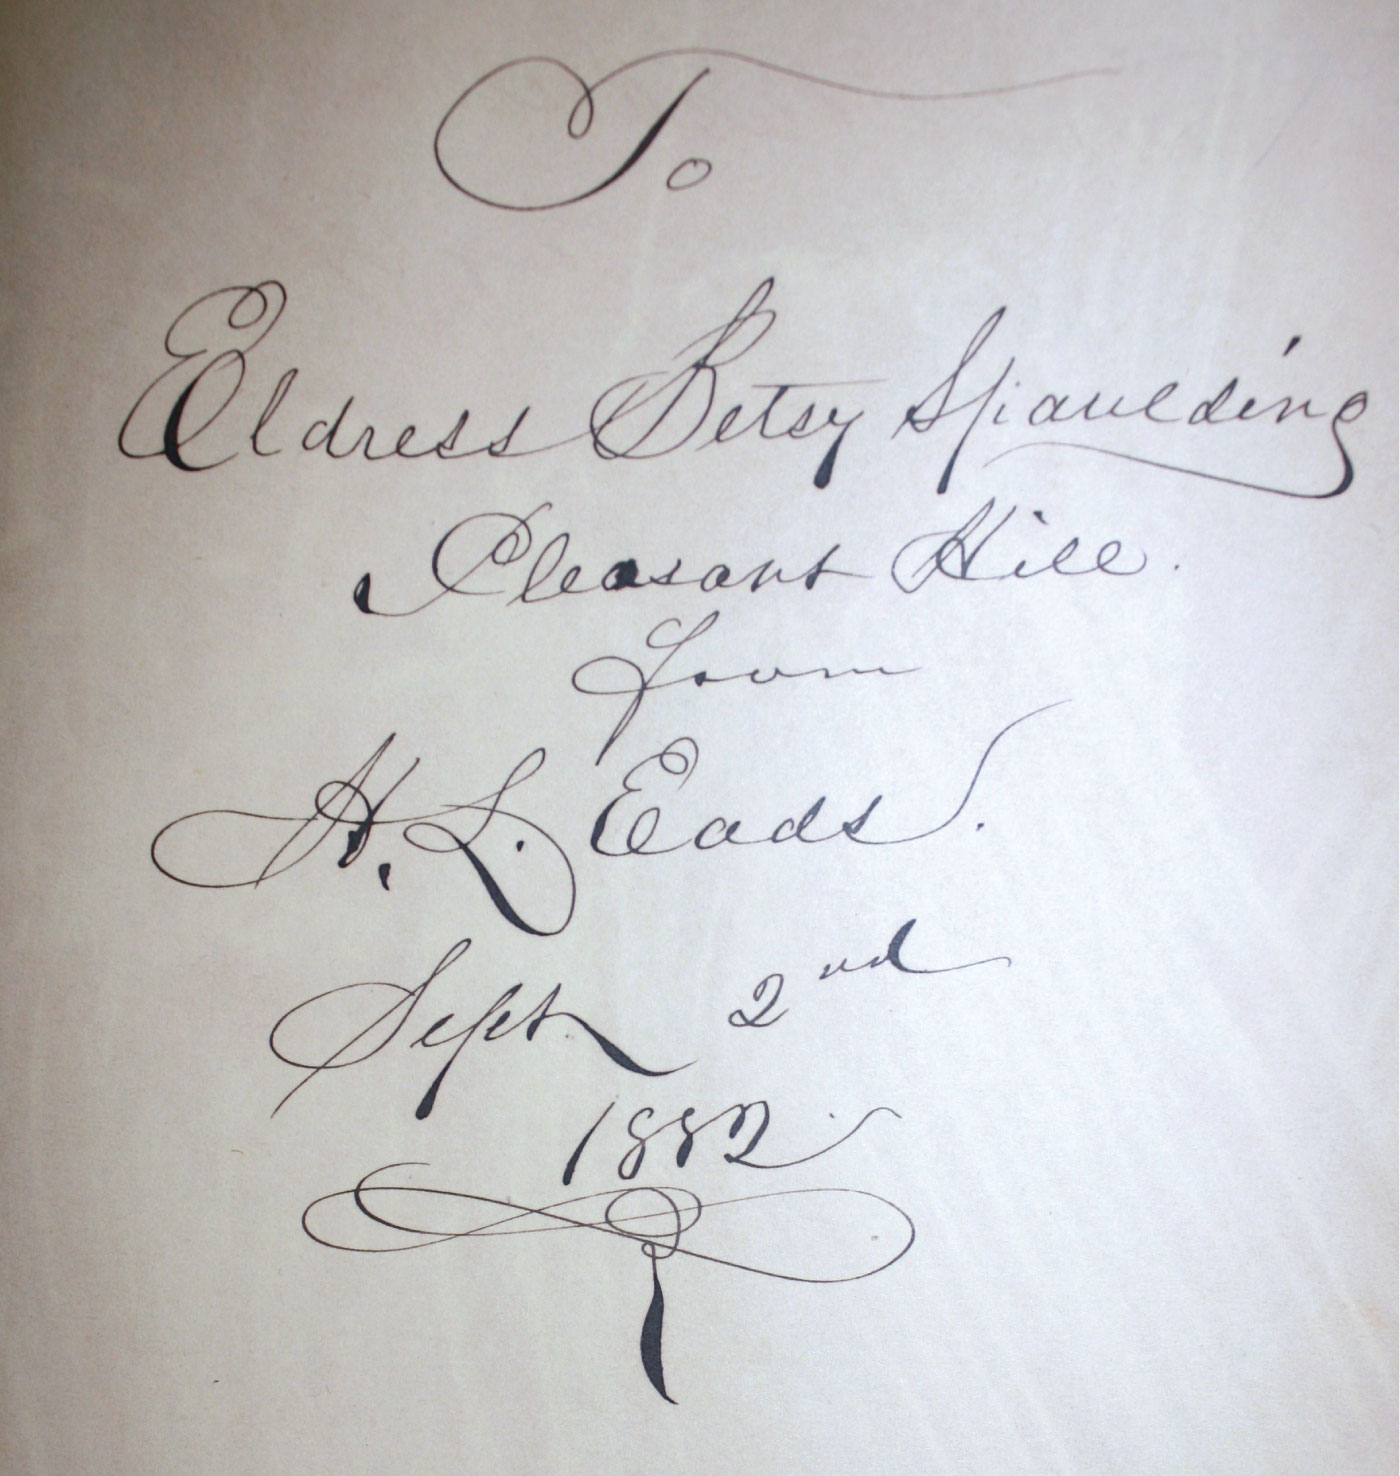 To
Eldress Betsy Spaulding
Pleasant Hill.
from
H. L. Eads.
Sept 2nd
1882.